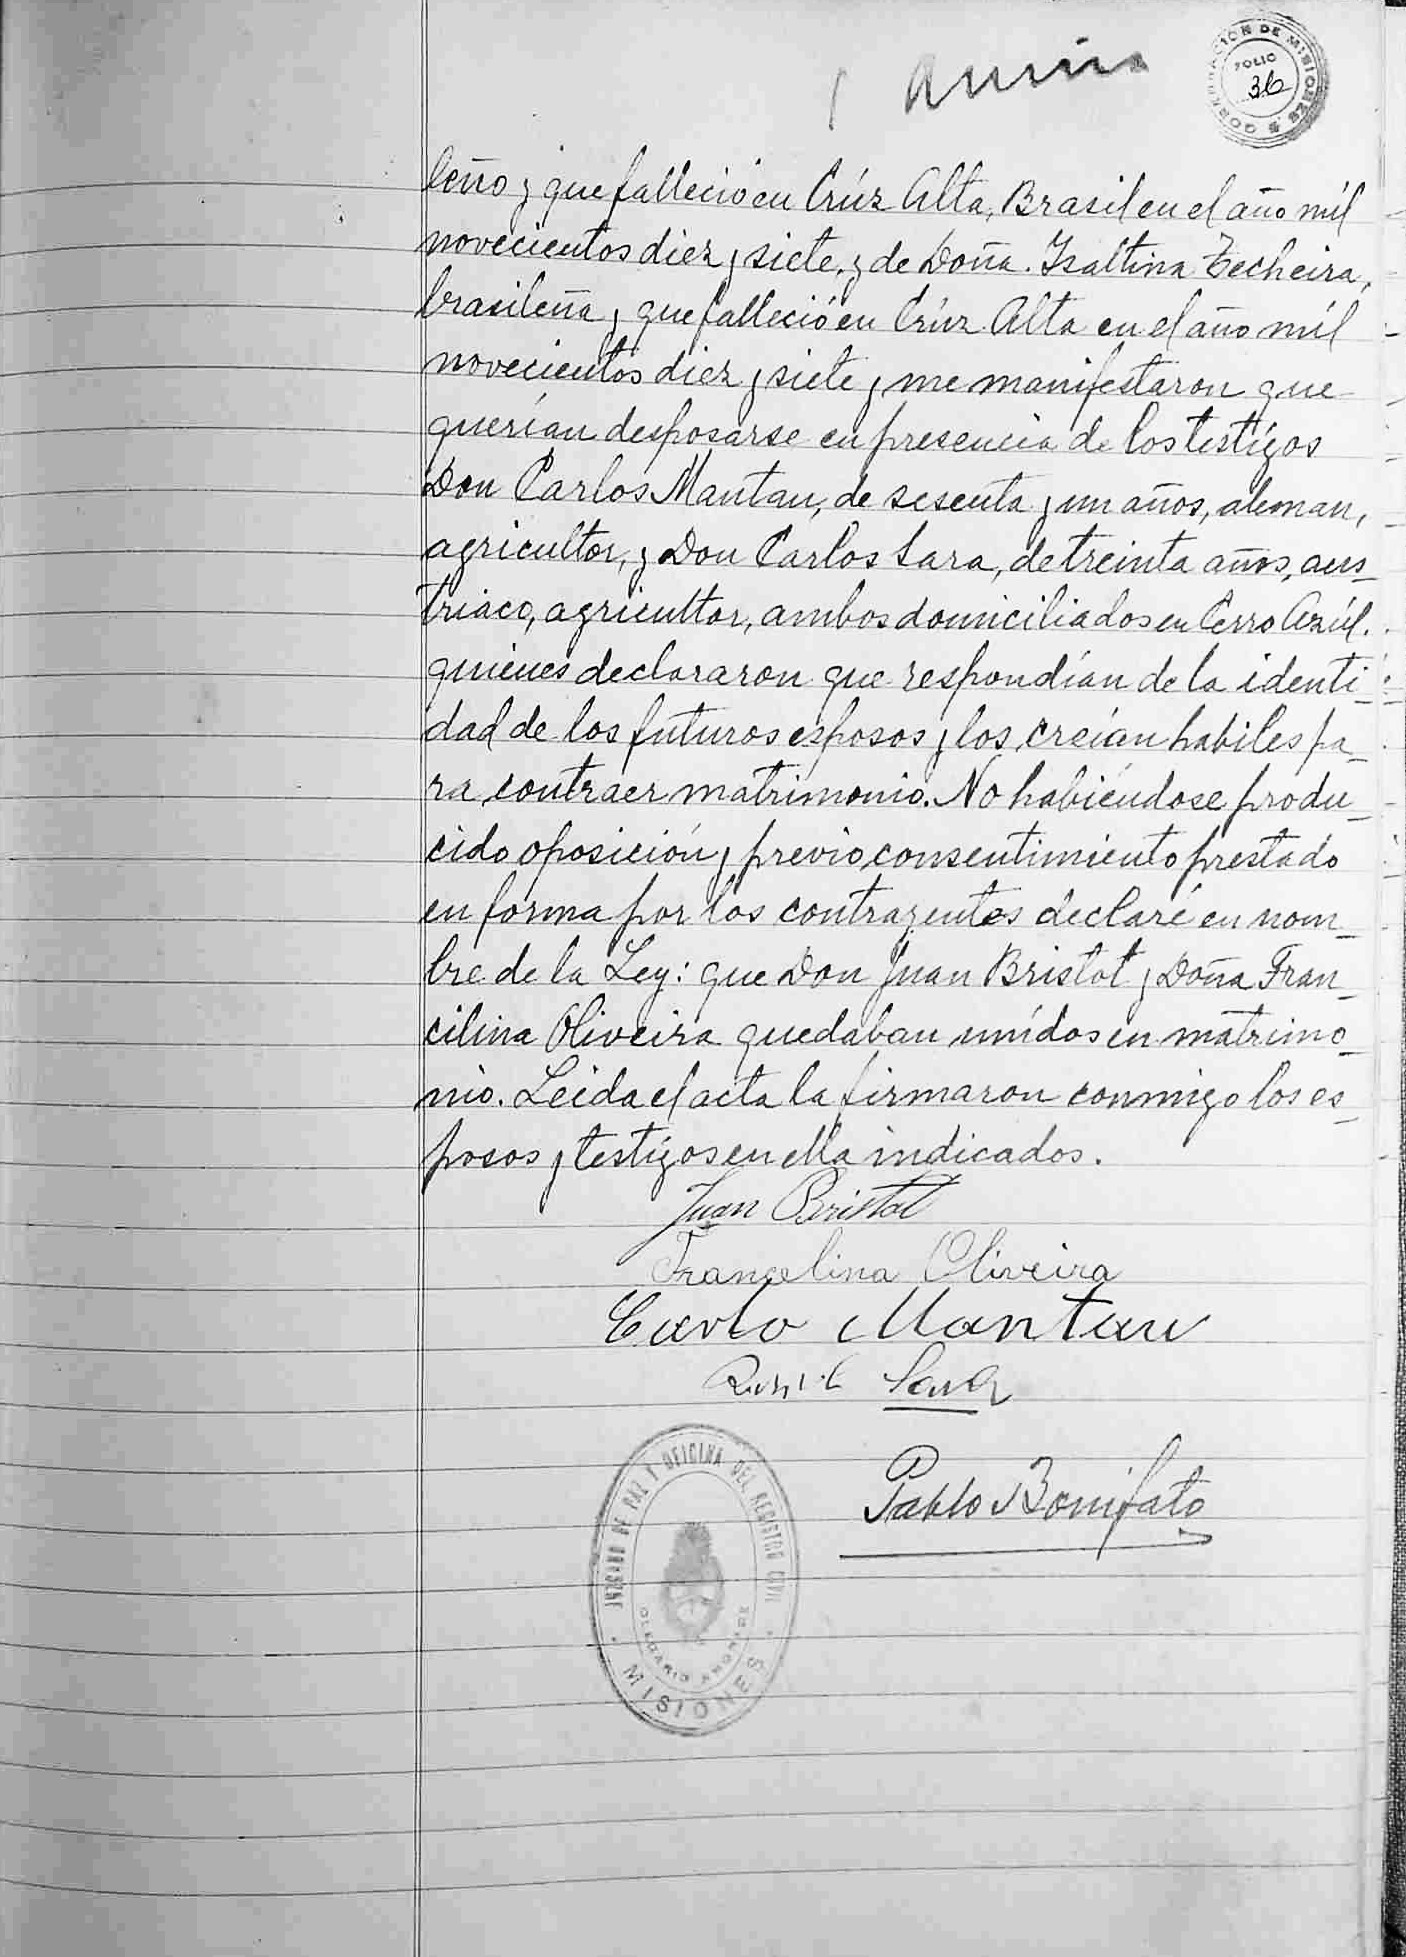 GOBERNACION DE MISIONES
FOLIO
36
leño y que falleció en Crúz Alta, Brasil en el año mil
novecientos diez y siete, y de Doña. Isaltina Techeira,
brasileña y que falleció en Crúz Alta en el año mil
novecientos diez y siete y me manifestaron que
querían desposarse en presencia de los testigos
Don Carlos Mantau, de sesenta y un años, aleman,
agricultor, y Don Carlos Sara, de treinta años, aus_
triaco, agricultor, ambos domiciliados en Cerro Azúl.
quienes declararon que respondían de la identi_
dad de los futuros esposos y los creían habiles pa_
ra contraer matrimonio. No habiéndose produ_
cido oposición y previo consentimiento prestado
en forma por los contrayentes declaré en nom_
bre de la Ley: que Don Juan Bristot y Doña Fran_
cilina Oliveira quedaban unídos en matrimo_
nio. Leida el acta la firmaron conmigo los es_
posos y testigos en ella indicados.
Juan Bristot
Francelina Oliveira
Carlo Mantau
Sara
Pablo Bonifato
JUZGADO DE PAZ Y OFICINA DEL REGISTRO CIVIL
MISIONES